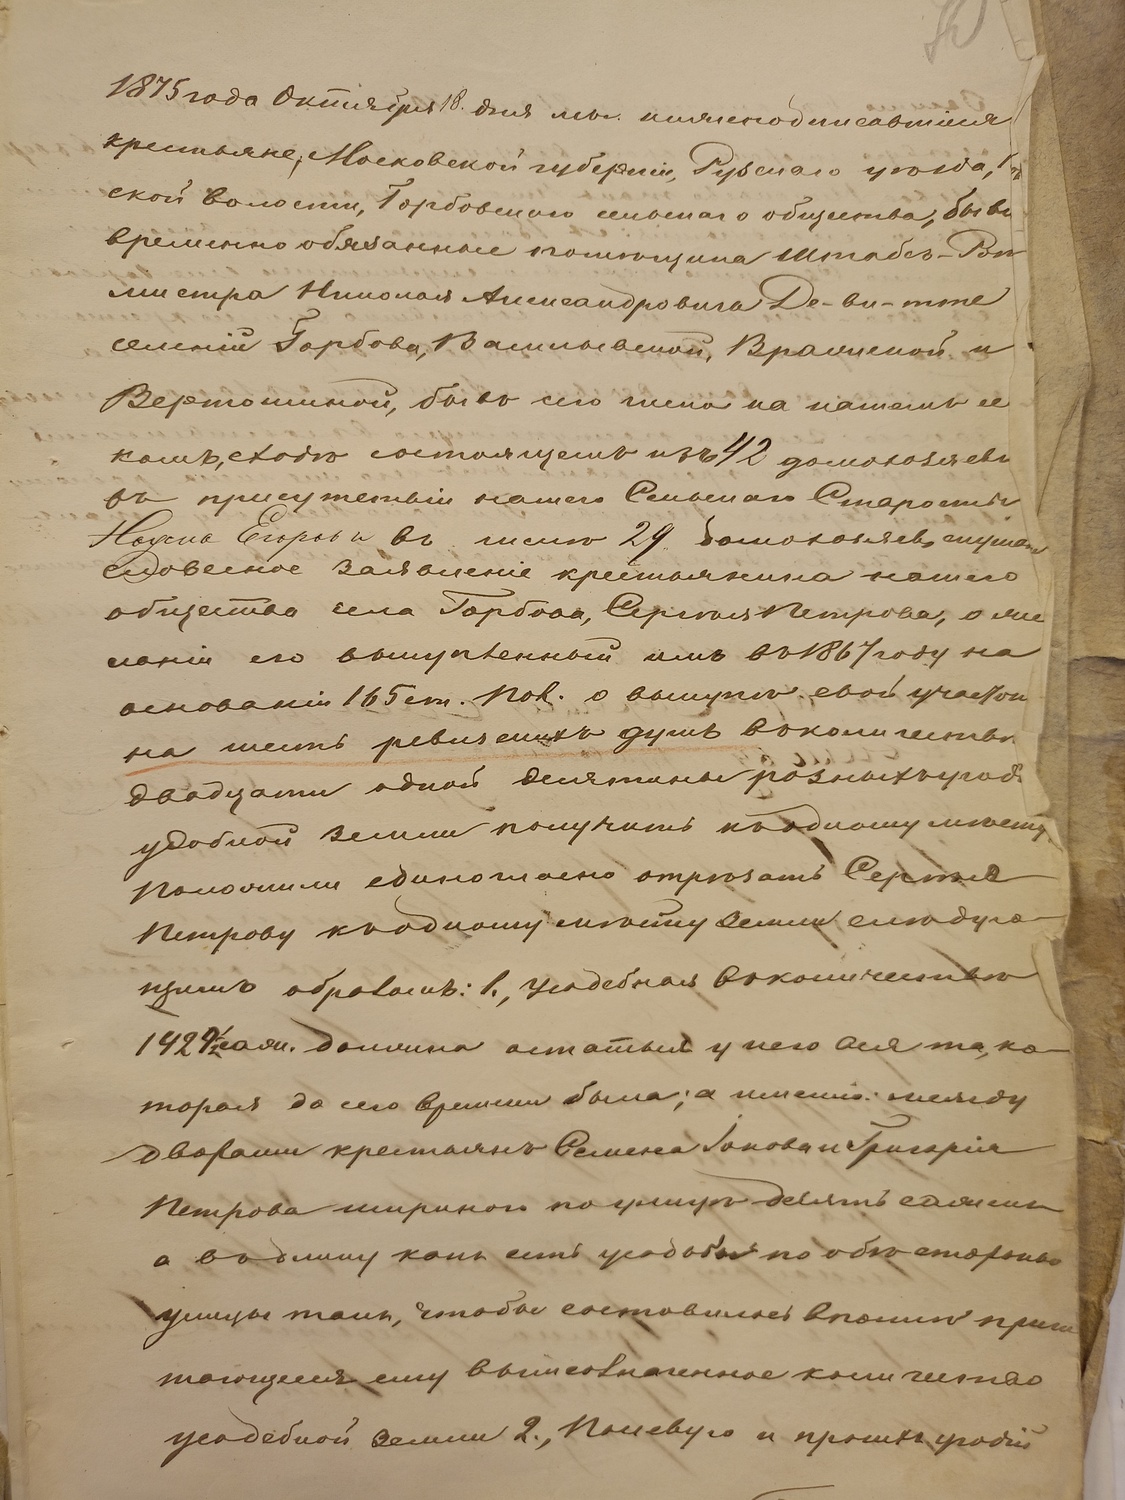 1875 года Октября 18. дня мы нижеподписавшіеся
крестьяне, Московской губерніи, Рузскаго уѣзда,
ской волости, Горбовскаго сельскаго общества, бывш
временно обязанные помѣщика Штабсъ-Рот
мистра Николая Александровича Де-ви-тте
селеній Горбова, Васильевской, Врамской и
Вертошиной, бывъ сего числа на нашемъ се
комъ, сходѣ состоящемъ изъ 42 домохозяевъ
въ присутствіи нашего Сельскаго Старосты
Наума Егорова въ числѣ 29 домохозяевъ, слушали
словесное заявленіе крестьянина нашего
общества села Горбова, Сергѣя Петрова, о же
ланіи его выкупленный имъ въ 1867 году на
основаніи 165 ст. Пол. о выкупѣ свой участок
на шесть ревизскихъ душъ въ количествѣ
двадцати одной десятины разныхъ угод
удобной земли получить къ одному мѣсту,
Положили единогласно отрѣзать Сергѣю
Петрову къ одному мѣсту земли слѣдую-
щимъ образомъ: 1., Усадебная въ количествѣ
1429½ саж. должна остаться у него вся та, ко-
торая до сего времени была; а именно: между
дворами крестьянъ Семена Іонова и Григорія
Петрова шириною по улицѣ девять сажень
а въ длину какъ есть усадьбы по обѣ стороны
улицы такъ, чтобы составилось вполнѣ причи
тающееся ему вышеозначенное количество
усадебной земли 2., Полевую и прочихъ угодій